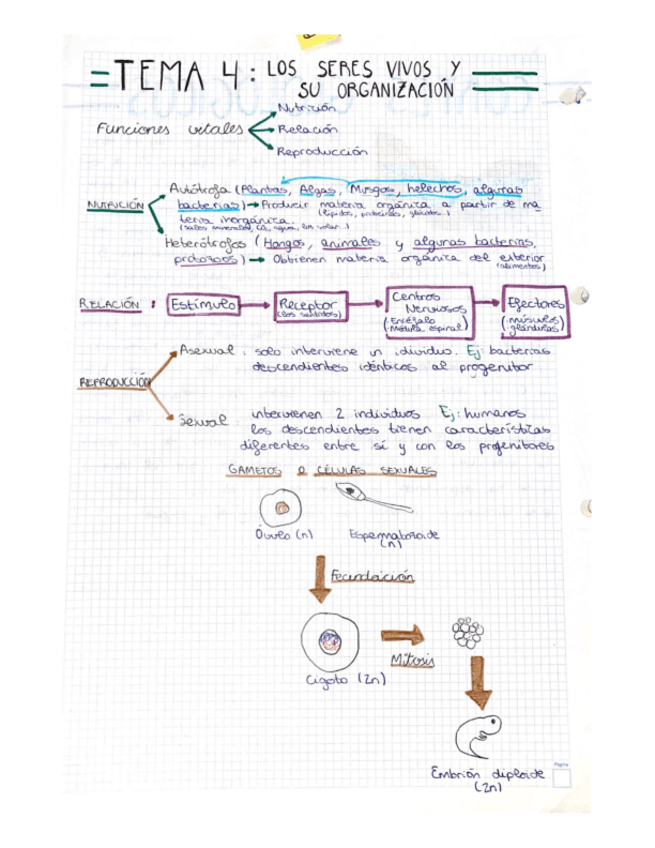 TEMA 4: LOS SERES VIVOS Y
SU ORGANIZACIÓN
Funciones vitales
Nutrición
Relación
Reproducción
NUTRICIÓN
Autótrofa (Plantas, Algas, Musgos, helechos, algunas
bacterias) → Producir materia orgánica a partir de ma
teria inorgánica. (lípidos, proteínas, glúcidos..)
(sales minerales, CO2, agua, luz solar..)
Heterótrofos (Hongos, animales y algunas bacterias,
protozoos) → Obtienen materia orgánica del exterior
(alimentos)
RELACIÓN:
Estímulo
Receptor
(los sentidos)
Centros
Nerviosos
(·Encéfalo
·Médula espinal)
Efectores
(·músculos)
·glándulas)
REPRODUCCIÓN
Asexual: solo interviene un individuo. Ej: bacterias
descendientes idénticos al progenitor
Sexual: intervienen 2 individuos Ej: humanos
los descendientes tienen características
diferentes entre sí y con los progenitores
GAMETOS O CÉLULAS SEXUALES
Óvulo (n)
Espermatozoide
(n)
Fecundación
Cigoto (2n)
Mitosis
Embrión diploide
(2n)
Página